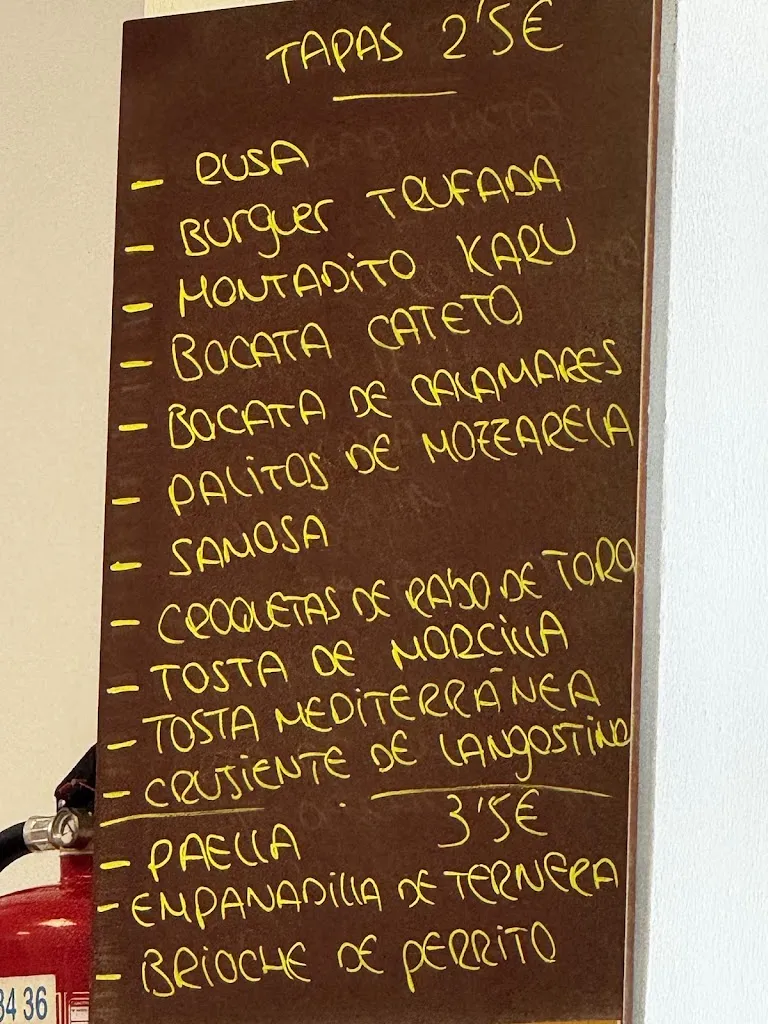 TAPAS 2'5€
- RUSA
- BURGUER TRUFADA
- MONTADITO KARU
- BOCATA CATETO
- BOCATA DE CALAMARES
- PALITOS DE MOZZARELA
- SAMOSA
- CROQUETAS DE RABO DE TORO
- TOSTA DE MORCILLA
- TOSTA MEDITERRÁNEA
- CRUJIENTE DE LANGOSTINO
3'5€
- PAELLA
- EMPANADILLA DE TERNERA
- BRIOCHE DE PERRITO
34 36